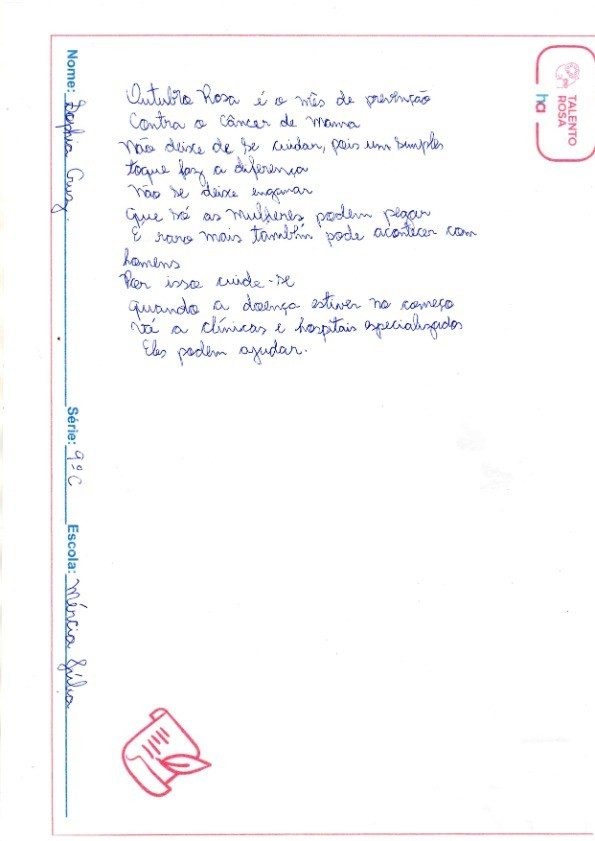 TALENTO
ROSA
ha
Nome: Sophia Cruz.
Série: 9º C
Escola: Mércia Silva
Outubro Rosa é o mês de prevenção
Contra o Câncer de Mama
Não deixe de se cuidar, pois um simples
toque faz a diferença
Não se deixe enganar
Que só as mulheres podem pegar
É raro mais também pode acontecer com
homens
Por isso cuide-se
quando a doença estiver no começo
Vá a clínicas e hospitais especializados
Eles podem ajudar.